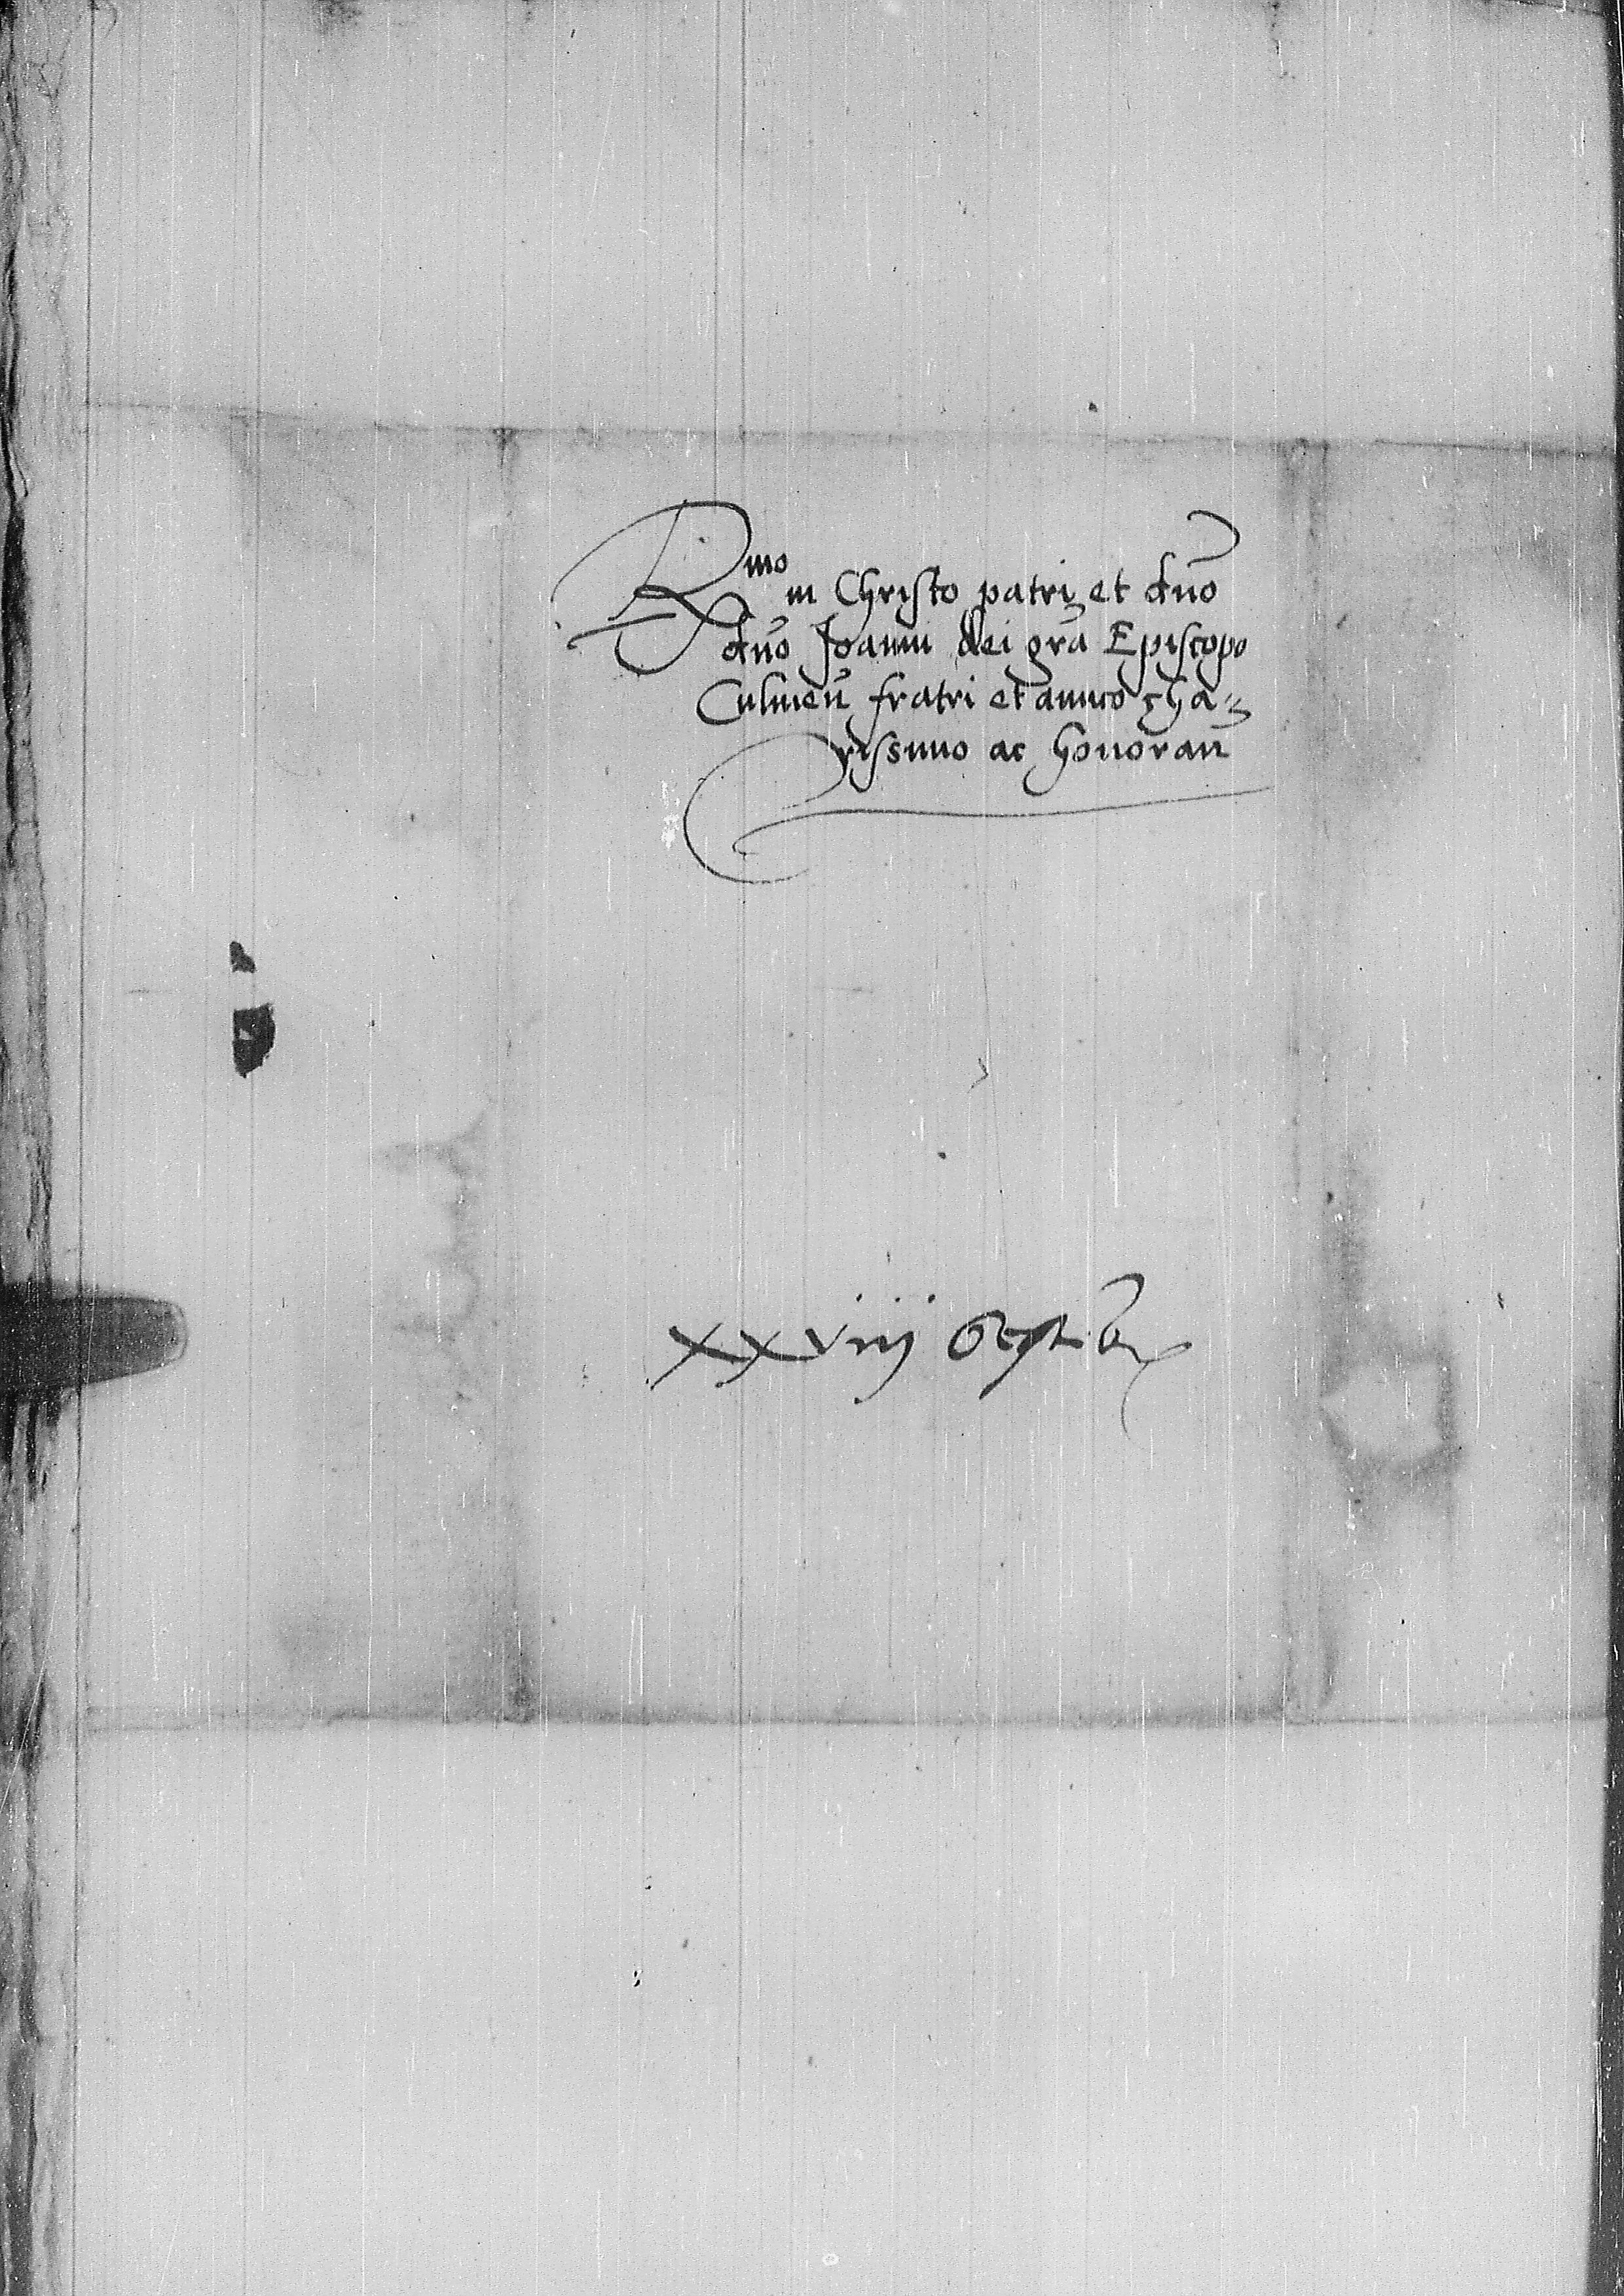 Rmo in Christo patri et dn̄o
dn̄o Joanni dei gr̄a Episcopo
Culmen̄ fratri et amico cha⸗
rissimo ac honoran̄
xxviij